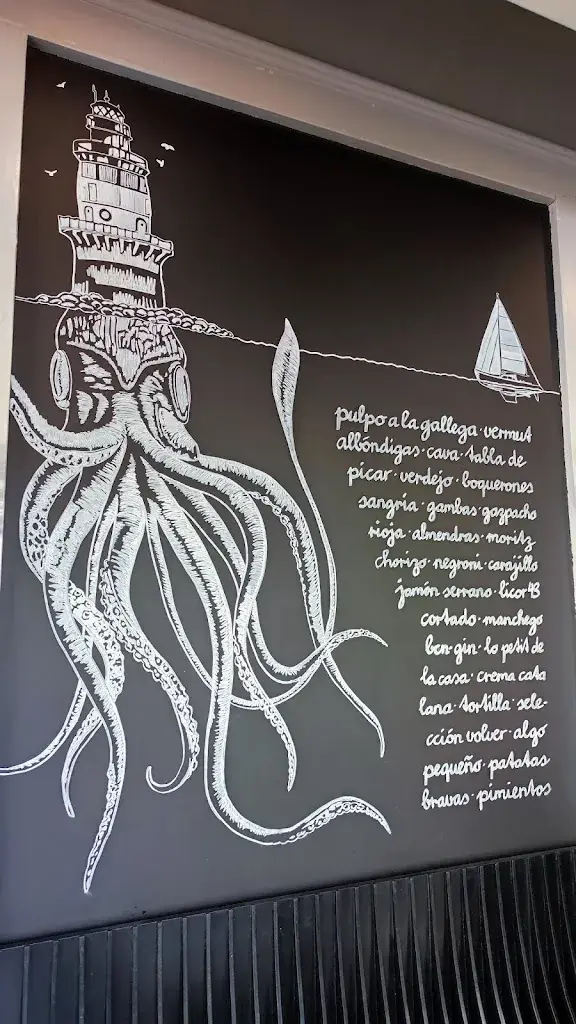 pulpo a la gallega · vermut
albóndigas · cava · tabla de
picar · verdejo · boquerones
sangría · gambas · gazpacho
rioja · almendras · moritz
chorizo · negroni · carajillo
jamón serrano · licor 43
cortado · manchego
ben gin · lo petit de
la casa · crema cata
lana · tortilla · sele-
cción volver · algo
pequeño · patatas
bravas · pimientos